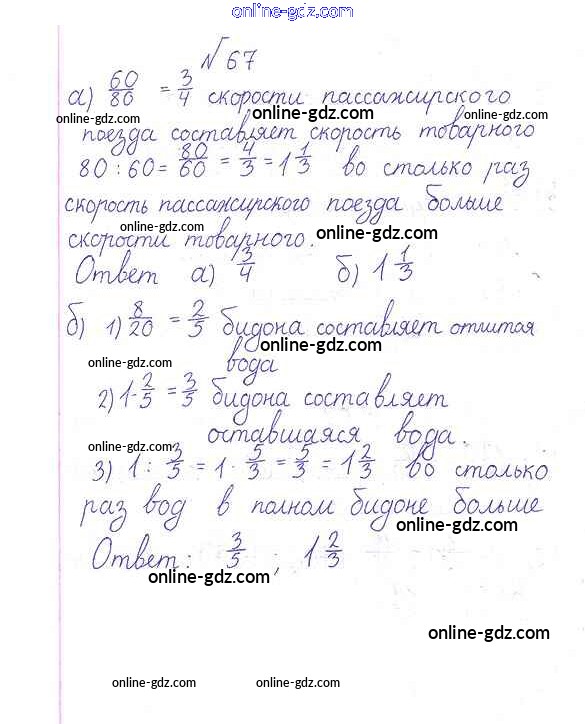 online-gdz.com
№67
а) 60/80 = 3/4 скорости пассажирского
online-gdz.com online-gdz.com
поезда составляет скорость товарного
80 : 60 = 80/60 = 4/3 = 1 1/3 во столько раз
online-gdz.com online-gdz.com
скорость пассажирского поезда больше
скорости товарного.
online-gdz.com
Ответ а) 3/4 б) 1 1/3
online-gdz.com
б) 1) 8/20 = 2/5 бидона составляет отлитая
online-gdz.com
вода
online-gdz.com
2) 1-2/5 = 3/5 бидона составляет
оставшаяся вода.
online-gdz.com
3) 1 : 3/5 = 1 · 5/3 = 5/3 = 1 2/3 во столько
online-gdz.com
раз вод в полном бидоне больше
online-gdz.com
Ответ: 3/5 ; 1 2/3
online-gdz.com
online-gdz.com
online-gdz.com online-gdz.com